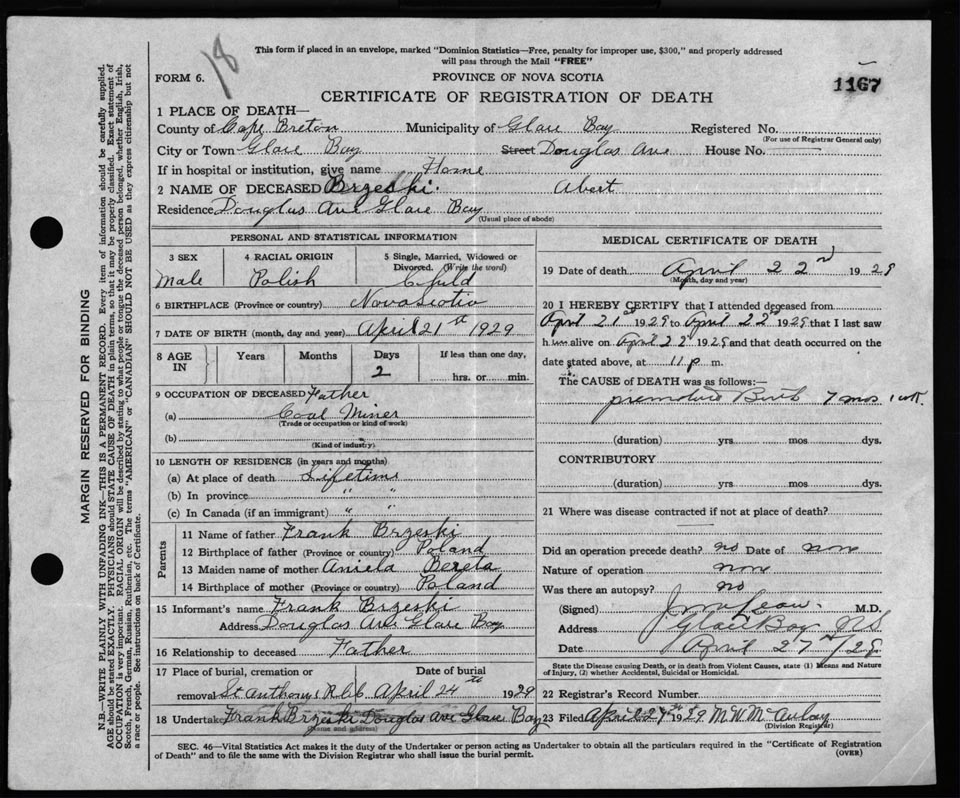 18
This form if placed in an envelope, marked "Dominion Statistics—Free, penalty for improper use, $300," and properly addressed
will pass through the Mail "FREE"
FORM 6.
PROVINCE OF NOVA SCOTIA
1167
CERTIFICATE OF REGISTRATION OF DEATH
1 PLACE OF DEATH—
County of Cape Breton Municipality of Glace Bay Registered No.
(For use of Registrar General only)
City or Town Glace Bay Street Douglas Ave House No.
If in hospital or institution, give name Home
2 NAME OF DECEASED Brzeski. Abert
Residence Douglas Ave Glace Bay
(Usual place of abode)
MARGIN RESERVED FOR BINDING
N.B.—WRITE PLAINLY WITH UNFADING INK—THIS IS A PERMANENT RECORD. Every item of information should be carefully supplied.
AGE should be stated EXACTLY. PHYSICIANS should STATE CAUSE OF DEATH in plain terms, so that it may be properly classified. Exact statement of
OCCUPATION is very important. RACIAL ORIGIN will be described by stating to what people or tongue the deceased person belonged, whether English, Irish,
Scotch, French, German, Russian, Ruthenian, etc. The terms "AMERICAN" or "CANADIAN" SHOULD NOT BE USED as they express citizenship but not
a race or people. See instructions on back of Certificate.
PERSONAL AND STATISTICAL INFORMATION
3 SEX
Male
4 RACIAL ORIGIN
Polish
5 Single, Married, Widowed or
Divorced. (Write the word)
Child
6 BIRTHPLACE (Province or country) Nova Scotia
7 DATE OF BIRTH (month, day and year) April 21st 1929
8 AGE IN
Years Months Days If less than one day,
2 hrs. or min.
9 OCCUPATION OF DECEASED Father
(a) Coal Miner
(Trade or occupation or kind of work)
(b)
(Kind of industry)
10 LENGTH OF RESIDENCE (in years and months)
(a) At place of death Lifetime
(b) In province " "
(c) In Canada (if an immigrant) " "
Parents
11 Name of father Frank Brzeski
12 Birthplace of father (Province or country) Poland
13 Maiden name of mother Aniela Bereta
14 Birthplace of mother (Province or country) Poland
15 Informant's name Frank Brzeski
Address Douglas Ave Glace Bay
16 Relationship to deceased Father
17 Place of burial, cremation or Date of burial
removal St Anthonys R.C. April 24th 1929
18 Undertaker Frank Brzeski Douglas Ave Glace Bay
(Name and address)
MEDICAL CERTIFICATE OF DEATH
19 Date of death April 22nd 1929
(Month, day and year)
20 I HEREBY CERTIFY that I attended deceased from
April 21st 1929 to April 22nd 1929 that I last saw
him alive on April 22 1929 and that death occurred on the
date stated above, at 11 p m.
The CAUSE OF DEATH was as follows:—
premature Birth 7 mos 1 wk.
(duration) yrs mos dys.
CONTRIBUTORY
(duration) yrs mos dys.
21 Where was disease contracted if not at place of death?
Did an operation precede death? no Date of non
Nature of operation none
Was there an autopsy? no
(Signed) M.D.
Address Glace Bay NS
Date April 27nd /29
State the Disease causing Death, or in death from Violent Causes, state (1) Means and Nature
of Injury, (2) whether Accidental, Suicidal or Homicidal.
22 Registrars Record Number
23 Filed April 24th 1929 M.W. McAulay
(Division Registrar)
SEC. 46—Vital Statistics Act makes it the duty of the Undertaker or person acting as Undertaker to obtain all the particulars required in the "Certificate of Registration
of Death" and to file the same with the Division Registrar who shall issue the burial permit.
(OVER)